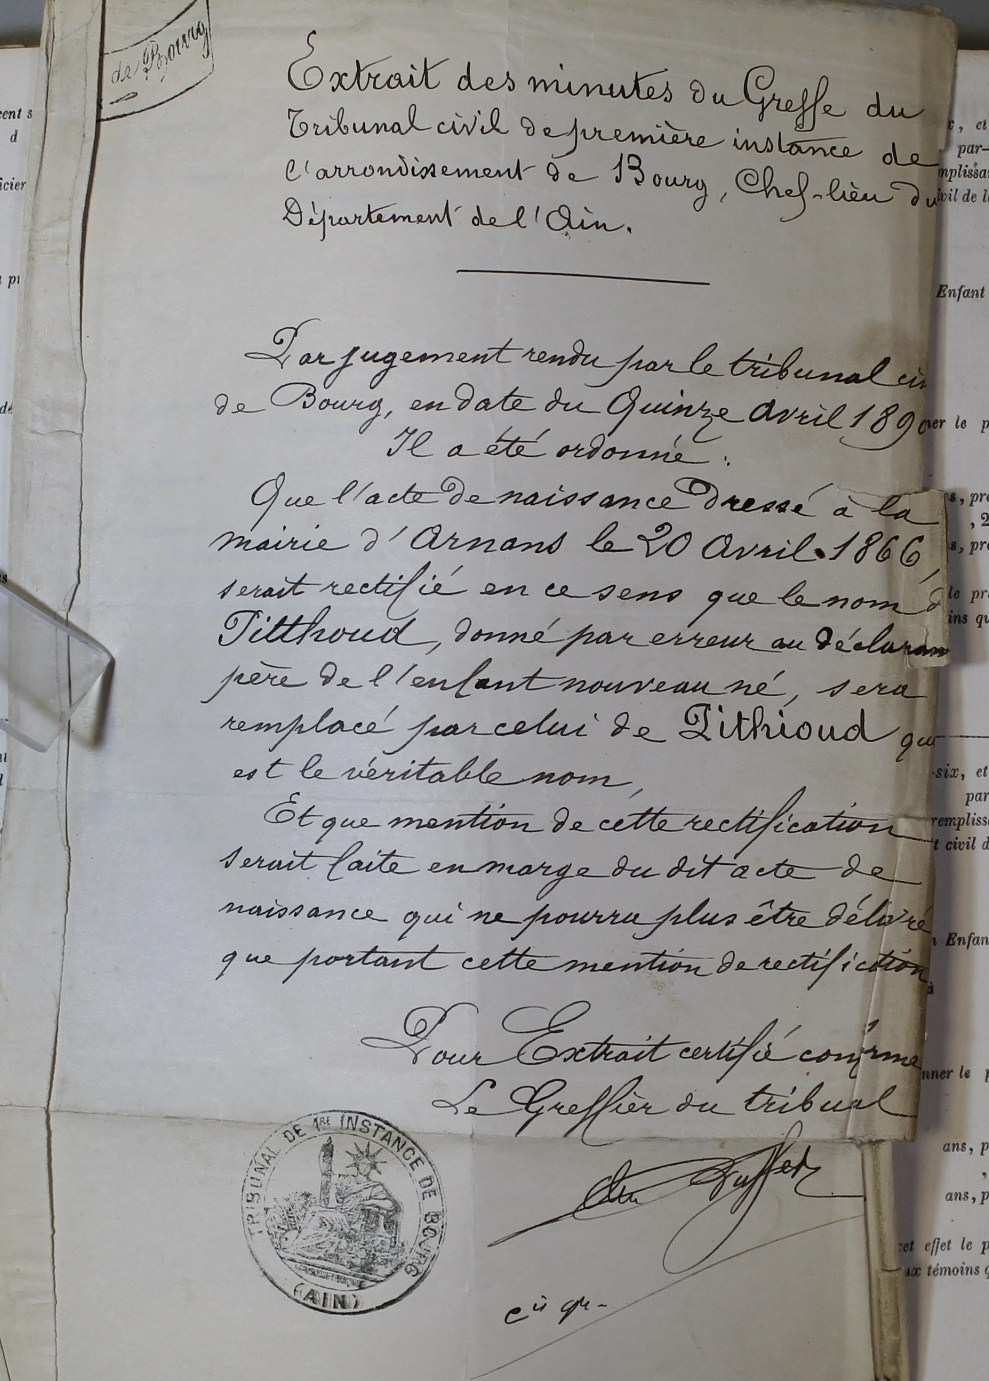 de Bourg
Extrait des minutes du Greffe du
Tribunal civil de première instance de
l'arrondissement de Bourg, Chef-lieu du
Département de l'Ain.
Par jugement rendu par le tribunal ci
de Bourg, en date du Quinze Avril 1890
Il a été ordonné :
Que l'acte de naissance Dressé à la
mairie d'Arnans le 20 Avril 1866,
serait rectifié en ce sens que le nom d
Pitthoud, donné par erreur au déclaran
père de l'enfant nouveau né, sera
remplacé par celui de Pithioud qui
est le véritable nom,
Et que mention de cette rectification
serait faite en marge du dit acte de
naissance qui ne pourra plus être délivré
que portant cette mention de rectification
Pour Extrait certifié conforme
Le Greffier du tribual
TRIBUNAL DE 1RE INSTANCE DE BOURG
(AIN)
cent s
d
icier
Enfant
er le p
s, pro
, 2
s, pro
le pro
ins qu
-six, et
par
remplissa
t civil d
Enfan
nner le p
ans, p
ans, p
cet effet le p
ux témoins q